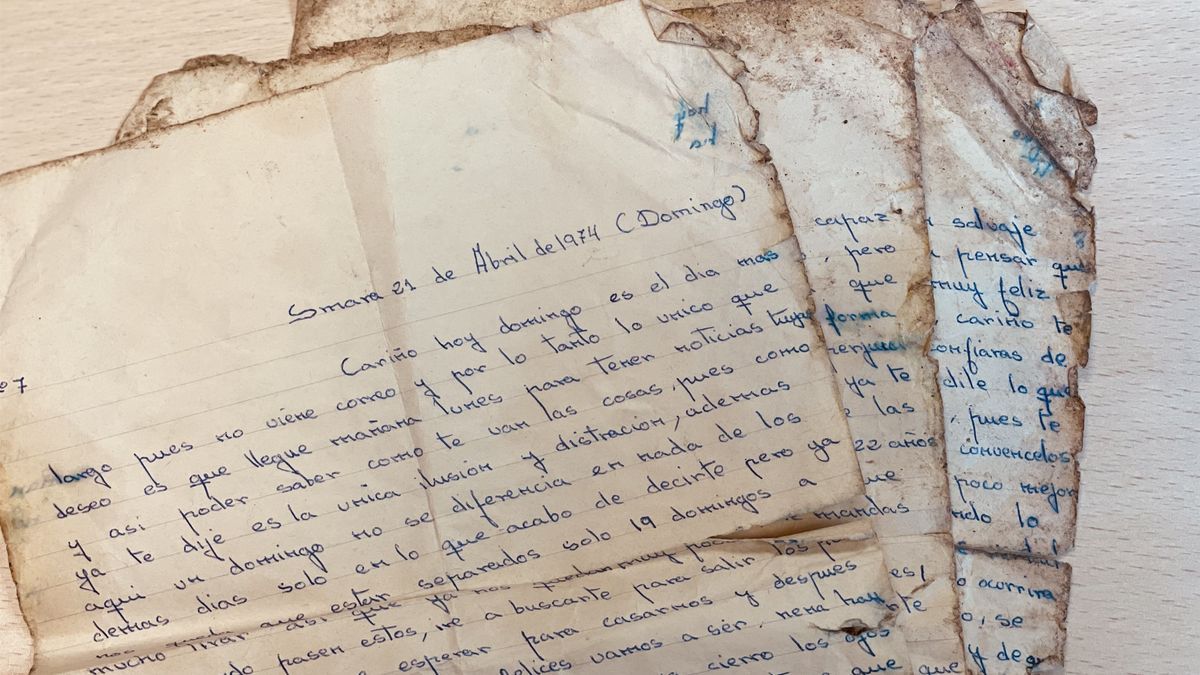 Smara 21 de Abril de 1974 (Domingo)
º 7
Cariño hoy domingo es el dia mas
largo pues no viene correo y por lo tanto lo unico que
deseo es que llegue mañana lunes para tener noticias tuyas
y asi poder saber como te van las cosas, pues como
ya te dije es la unica ilusión y distración, ademas
aqui un domingo no se diferencia en nada de los
demas dias solo en lo que acabo de decirte pero ya
asi que ya nos quedan muy poc
mucho tirar que estar separados solo 19 domingos a
do pasen estos, ire a buscarte para salir los
esperar para casarnos y despues
felices vamos a sér, nena hay
cierro los ojos
que
capaz
, pero
que
forma
perjui
ya te
e las
22 años
que
e mandas
es/
nte
que
salvaje
pensar que
muy feliz
cariño te
onfiaras de
dile lo que
, pues te
convencelos
poco mejor
ndo lo
o ocurrira
o, se
y de